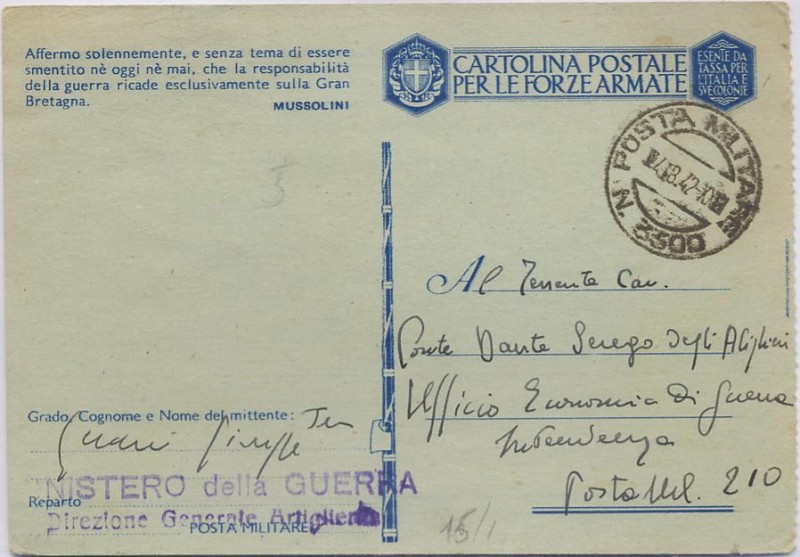 Affermo solennemente, e senza tema di essere
smentito nè oggi nè mai, che la responsabilità
della guerra ricade esclusivamente sulla Gran
Bretagna.
MUSSOLINI
CARTOLINA POSTALE
PER LE FORZE ARMATE
ESENTE DA
TASSA PER
L'ITALIA E
SVE COLONIE
N. POSTA MILITARE
3500
5
Al Tenente Cav.
Conte Dante Serego degli Alighieri
Ufficio Economia di Guerra
Intendenza
Posta Mil. 210
Grado, Cognome e Nome del mittente: Ten
NISTERO della GUERRA
Reparto
Direzione Generale Artiglieria
POSTA MILITARE
15/1